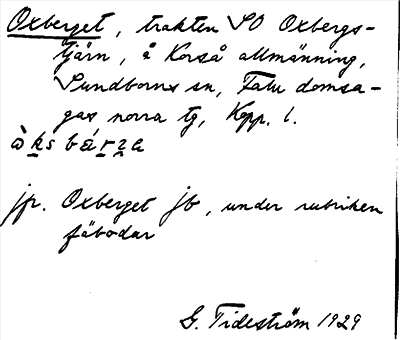 Oxberget, trakten SO Oxbergs-
tjärn, å Korså allmänning,
Sundborns sn, Falu domsa-
gas norra tg, Kopp. l.
jfr. Oxberget jb, under rubriken
fäbodar
G. Tideström 1929